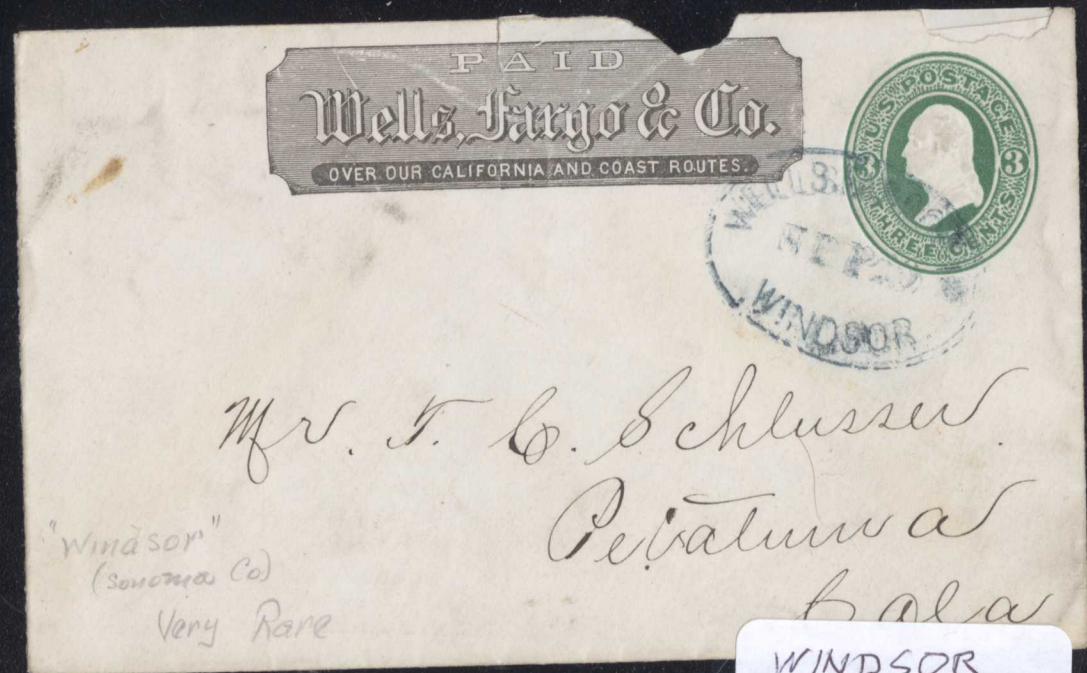 PAID
Wells, Fargo & Co.
OVER OUR CALIFORNIA AND COAST ROUTES.
U.S. POSTAGE
3 3
THREE CENTS
WELLS
SEP
WINDSOR
Mr. T. C. Schlusser.
Petatuma
Cala
"Windsor"
(Sonoma Co)
Very Rare
WINDSOR